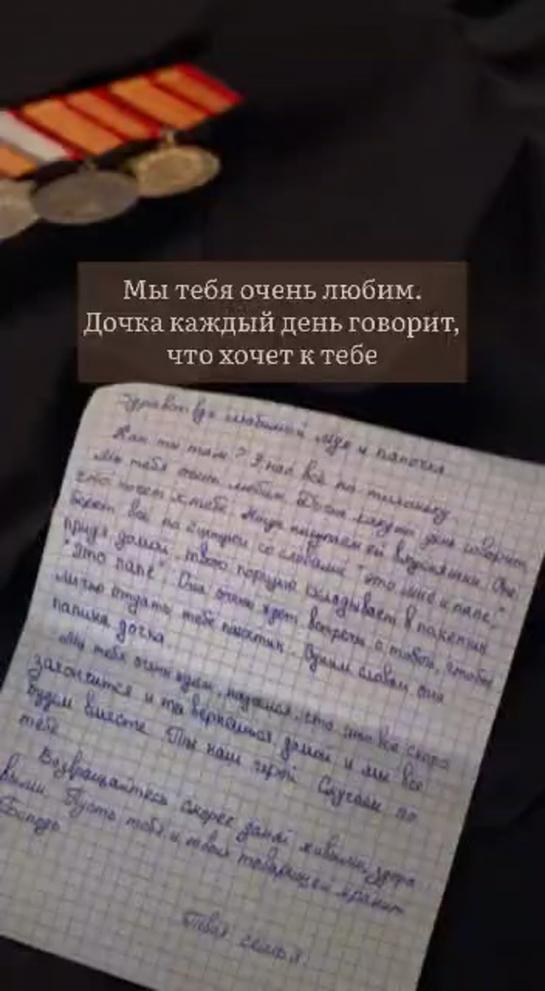 Мы тебя очень любим.
Дочка каждый день говорит,
что хочет к тебе
Здравствуй любимый муж и папочка
Как ты там? У нас всё по тихоньку.
Мы тебя очень любим. Дочка каждый день говорит,
что хочет к тебе. Когда покупаем ей вкусняшки. Она
берёт всё по 2 штуки со словами "это мне и папе,"
придя домой, твою порцию складывает в пакетик
"Это папе". Она очень ждёт встречи с тобой, чтобы
лично отдать тебе пакетик. Одним словом, она
папина дочка.
Мы тебя очень ждём, надеемся, что это всё скоро
закончится и ты вернёшься домой и мы все
будем вместе. Ты наш герой. Скучаем по
тебе.
Возвращайтесь скорее домой живыми, здоро
выми. Пусть тебя и твоих товарищей хранит
Господь
Твоя семья.